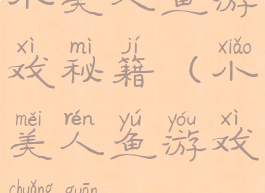 美人鱼游
xì mì jí xiǎo
戏秘籍(小
měi rén yú yóu xì
美人鱼游戏
chuǎng guān